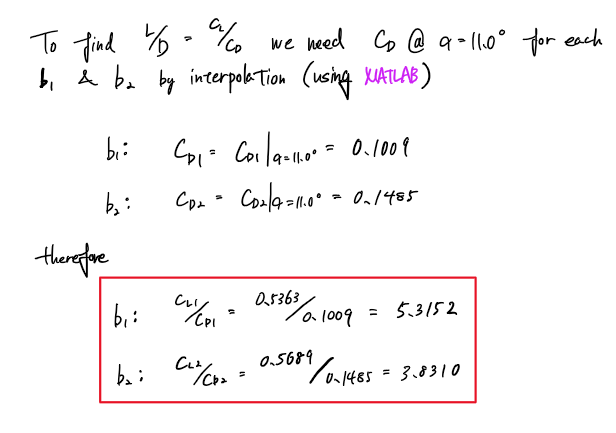 To find L/D = CL/CD we need CD @ α = 11.0° for each
b₁ & b₂ by interpolation (using MATLAB)
b₁: CD1 = CD1|α=11.0° = 0.1009
b₂: CD2 = CD2|α=11.0° = 0.1485
therefore
b₁: CL1/CD1 = 0.5363/0.1009 = 5.3152
b₂: CL2/CD2 = 0.5689/0.1485 = 3.8310